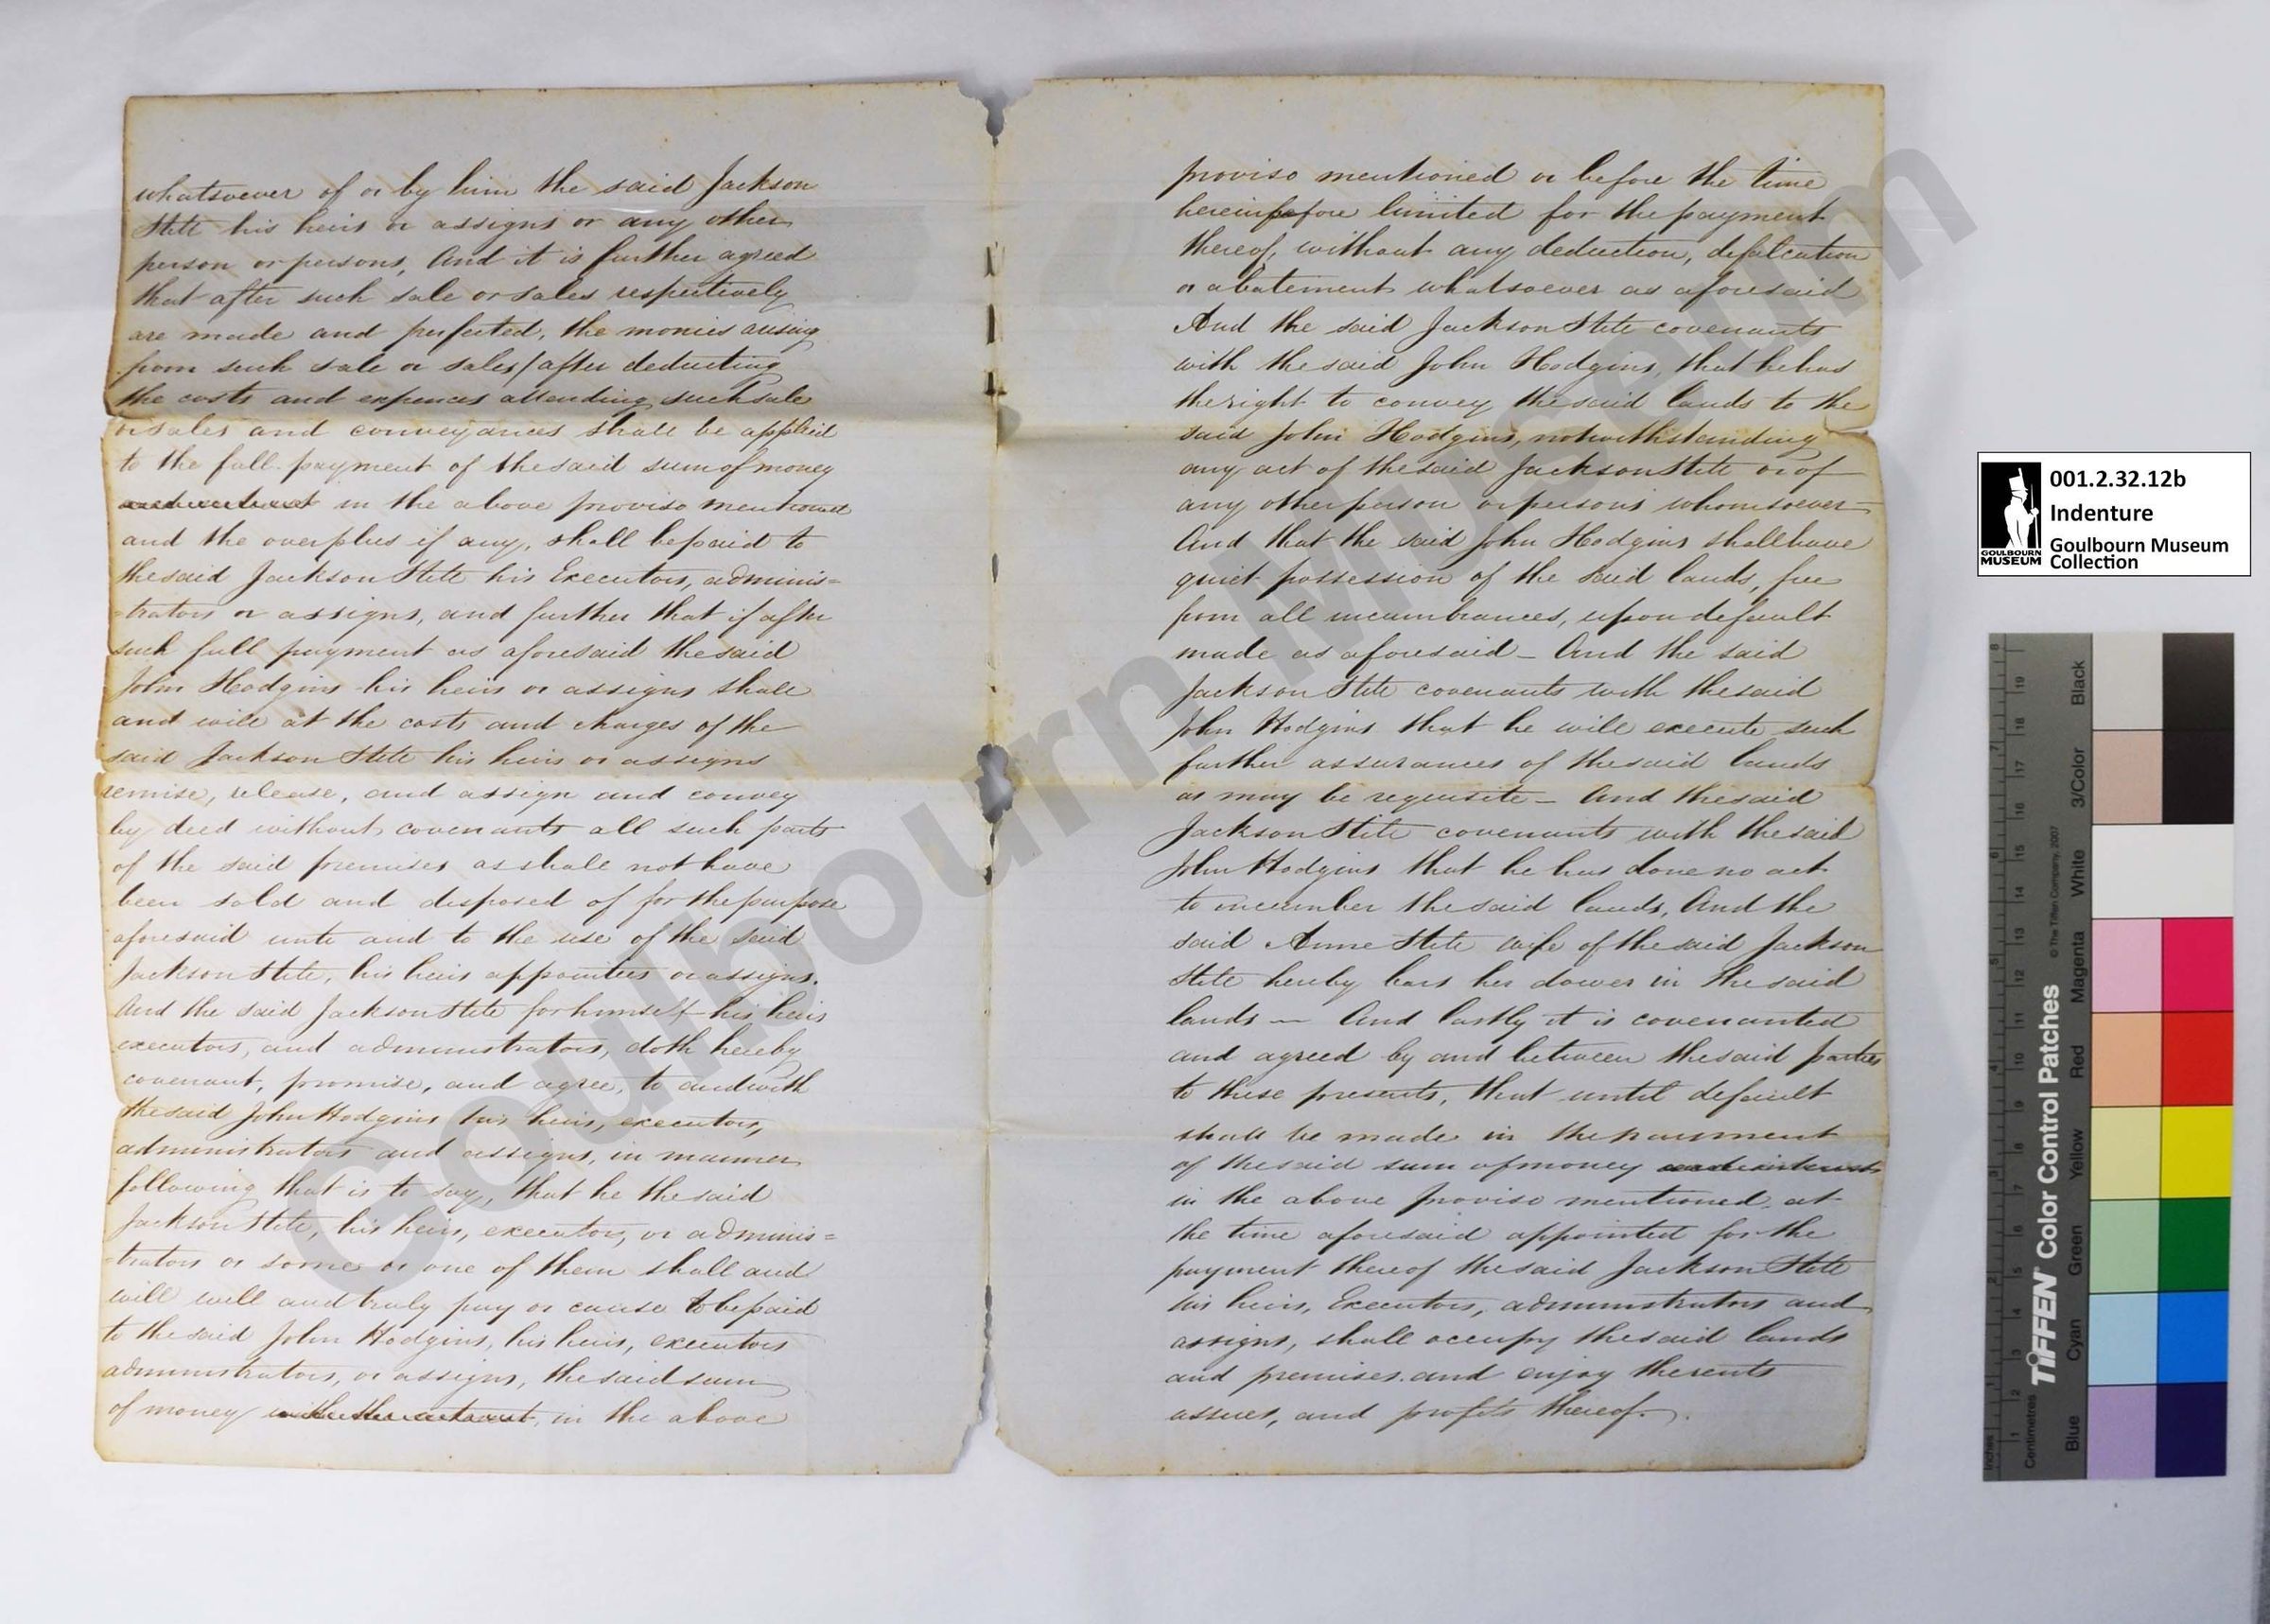 whatsoever of or by him the said Jackson
Stitt his heirs or assigns or any other
person or persons, And it is further agreed
that after such sale or sales respectively
are made and perfected, the monies arising
from such sale or sales / after deducting
the costs and expences attending such sale
or sales and conveyances shall be applied
to the full payment of the said sum of money
and interest in the above proviso mentioned
and the overplus if any, shall be paid to
the said Jackson Stitt his Executors, adminis=
=trators or assigns, and further that if after
such full payment as aforesaid the said
John Hodgins his heirs or assigns shall
and will at the costs and charges of the
said Jackson Stitt his heirs or assigns
remise, release, and assign and convey
by deed without covenants all such parts
of the said premises as shall not have
been sold and disposed of for the purpose
aforesaid unto and to the use of the said
Jackson Stitt, his heirs appointees or assigns.
And the said Jackson Stitt for himself his heirs
executors, and administrators, doth hereby
covenant, promise, and agree, to and with
the said John Hodgins his heirs, executors,
administrators and assigns, in manner
following that is to say, that he the said
Jackson Stitt, his heirs, executors, or adminis=
=trators or some or one of them shall and
will well and truly pay or cause to be paid
to the said John Hodgins, his heirs, executors
administrators, or assigns, the said sum
of money with the interest, in the above
proviso mentioned on before the time
hereinbefore limited for the payment
thereof, without any deduction, defalcation
or abatement whatsoever as aforesaid
And the said Jackson Stitt covenants
with the said John Hodgins, that he has
the right to convey the said lands to the
said John Hodgins, notwithstanding
any act of the said Jackson Stitt or of
any other person or persons whomsoever
And that the said John Hodgins shall have
quiet possession of the said lands, free
from all incumbrances, upon default
made as aforesaid – And the said
Jackson Stitt covenants with the said
John Hodgins that he will execute such
further assurances of the said lands
as may be requisite – And the said
Jackson Stitt covenants with the said
John Hodgins that he has done no act
to incumber the said lands, And the
said Anne Stitt wife of the said Jackson
Stitt hereby bars her dower in the said
lands — And lastly it is covenanted
and agreed by and between the said parties
to these presents, that until default
shall be made in the payment
of the said sum of money and interest
in the above proviso mentioned, at
the time aforesaid appointed for the
payment thereof the said Jackson Stitt
his heirs, Executors, administrators and
assigns, shall occupy the said lands
and premises and enjoy the rents
issues, and profits thereof.
001.2.32.12b
Indenture
Goulbourn Museum
Collection
GOULBOURN
MUSEUM
Goulbourn Museum
TIFFEN Color Control Patches
© The Tiffen Company, 2007
Inches
Centimetres
Blue Cyan Green Yellow Red Magenta White 3/Color Black